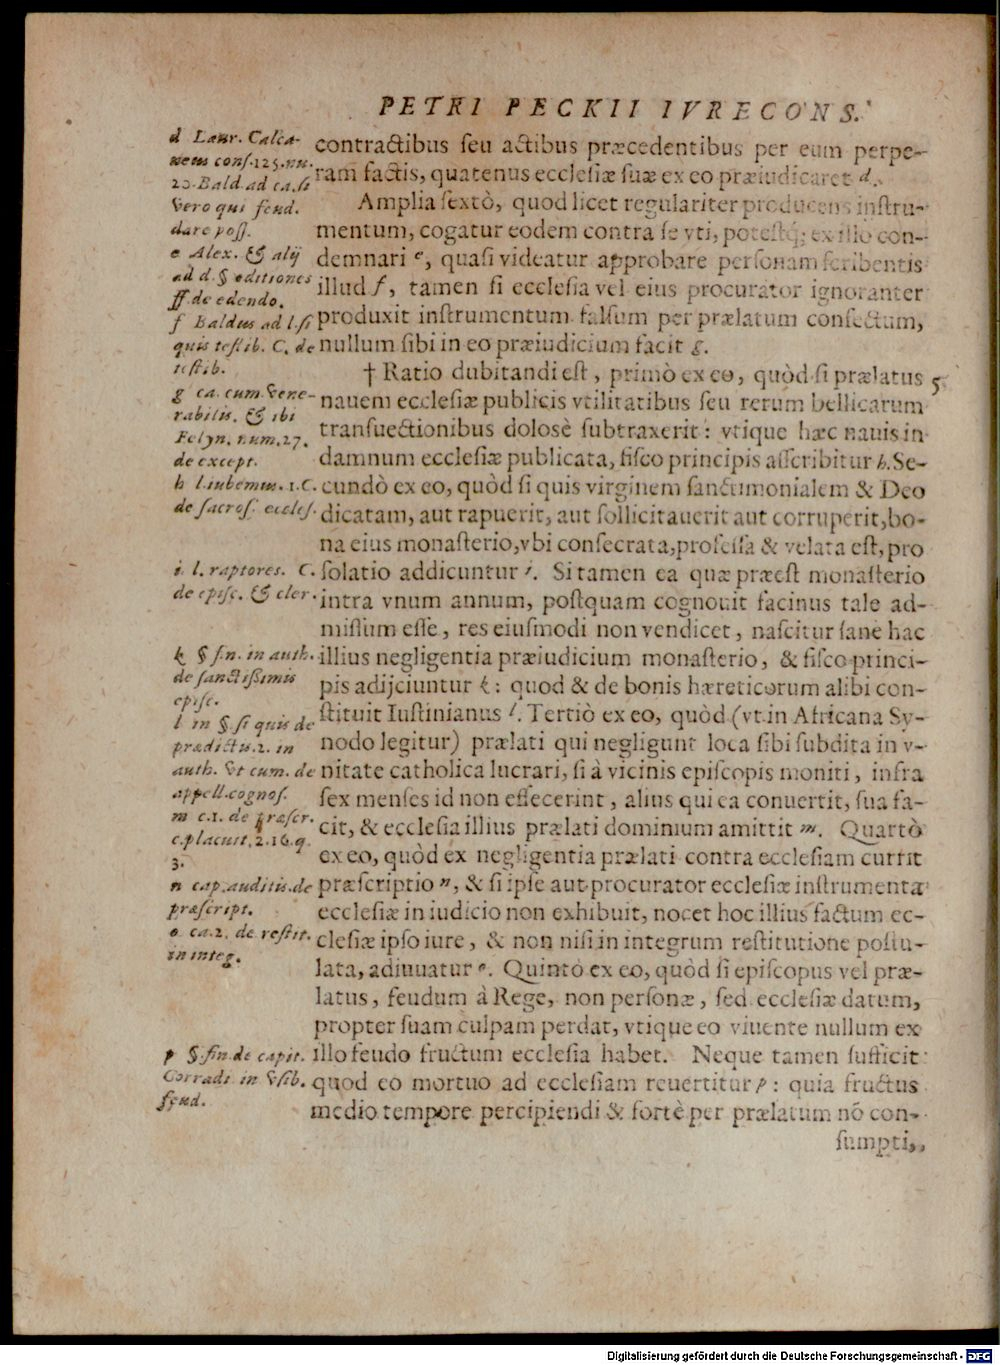 PETRI PECKII IVRECONS.
d Laur. Calca-
neus cons. 125. nu.
20. Bald. ad ca. si
vero qui feud.
dare poss.
e Alex. & alij
ad d. § editiones
ff. de edendo.
f Baldus ad l. si
quis testib. C. de
testib.
g ca. cum Vene-
rabilis. & ibi
Felyn. num. 27.
de except.
h l. iubemus. 1. C.
de sacros. eccles.
i. l. raptores. C.
de episc. & cler.
k § fin. in auth.
de sanctissimis
episc.
l in §. si quis de
prædictis. 2. in
auth. vt cum. de
appell. cognos.
m c. 1. de præscr.
c. placuit. 2. 16. q.
3.
n cap. auditis. de
præscript.
o ca. 2. de restit.
in integ.
p §. fin. de capit.
Corradi in vsib.
feud.
contractibus seu actibus præcedentibus per eum perpe-
ram factis, quatenus ecclesiæ suæ ex eo præiudicaret d.
Amplia sextò, quod licet regulariter producens instru-
mentum, cogatur eodem contra se vti, potestq́; ex illo con-
demnari e, quasi videatur approbare personam scribentis
illud f, tamen si ecclesia vel eius procurator ignoranter
produxit instrumentum falsum per prælatum confectum,
nullum sibi in eo præiudicium facit g.
† Ratio dubitandi est, primò ex eo, quòd si prælatus 5
nauem ecclesiæ publicis vtilitatibus seu rerum bellicarum
transuectionibus dolosè subtraxerit: vtique hæc nauis in
damnum ecclesiæ publicata, fisco principis asscribitur h. Se-
cundò ex eo, quòd si quis virginem sanctimonialem & Deo
dicatam, aut rapuerit, aut sollicitauerit aut corruperit, bo-
na eius monasterio, vbi consecrata, professa & velata est, pro
solatio addicuntur i. Si tamen ea quæ præest monasterio
intra vnum annum, postquam cognouit facinus tale ad-
missum esse, res eiusmodi non vendicet, nascitur sane hac
illius negligentia præiudicium monasterio, & fisco princi-
pis adijciuntur k: quod & de bonis hæreticorum alibi con-
stituit Iustinianus l. Tertiò ex eo, quòd (vt in Africana Sy-
nodo legitur) prælati qui negligunt loca sibi subdita in v-
nitate catholica lucrari, si à vicinis episcopis moniti, infra
sex menses id non effecerint, alius qui ea conuertit, sua fa-
cit, & ecclesia illius prælati dominium amittit m. Quartò
ex eo, quòd ex negligentia prælati contra ecclesiam currit
præscriptio n, & si ipse aut procurator ecclesiæ instrumenta
ecclesiæ in iudicio non exhibuit, nocet hoc illius factum ec-
clesiæ ipso iure, & non nisi in integrum restitutione postu-
lata, adiuuatur o. Quintò ex eo, quòd si episcopus vel præ-
latus, feudum à Rege, non personæ, sed ecclesiæ datum,
propter suam culpam perdat, vtique eo viuente nullum ex
illo feudo fructum ecclesia habet. Neque tamen sufficit
quod eo mortuo ad ecclesiam reuertitur p: quia fructus
medio tempore percipiendi & fortè per prælatum nō con-
sumpti,
Digitalisierung gefördert durch die Deutsche Forschungsgemeinschaft - DFG